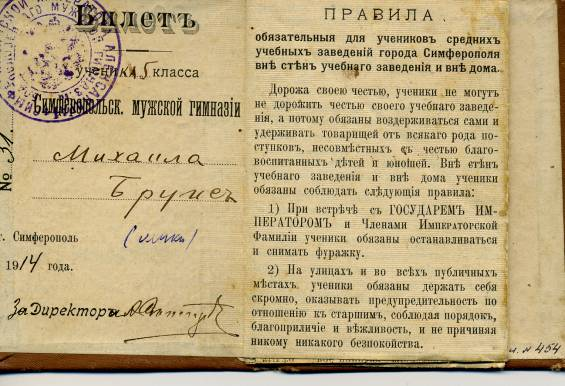 Билетъ
ученика 5 класса
Симферопольск. мужской гимназіи
№ 31
Михаила
Брунс
г. Симферополь
1914 года.
За Директора
ПРАВИЛА.
обязательныя для учениковъ средних
учебныхъ заведеній города Симферополя
внѣ стѣнъ учебнаго заведенія и внѣ дома.
Дорожа своею честью, ученики не могутъ
не дорожить честью своего учебнаго заведе-
нія, а потому обязаны воздерживаться сами и
удерживать товарищей отъ всякаго рода по-
ступковъ, несовмѣстныхъ съ честью благо-
воспитанныхъ дѣтей и юношей. Внѣ стѣнъ
учебнаго заведенія и внѣ дома ученики
обязаны соблюдать слѣдующія правила:
1) При встрѣчѣ съ ГОСУДАРЕМЪ ИМ-
ПЕРАТОРОМЪ и Членами Императорской
Фамиліи ученики обязаны останавливаться
и снимать фуражку.
2) На улицахъ и во всѣхъ публичныхъ
мѣстахъ ученики обязаны держать себя
скромно, оказывать предупредительность по
отношенію къ старшимъ, соблюдая порядокъ,
благоприличіе и вѣжливость, и не причиняя
никому никакого безпокойства.
№ 454